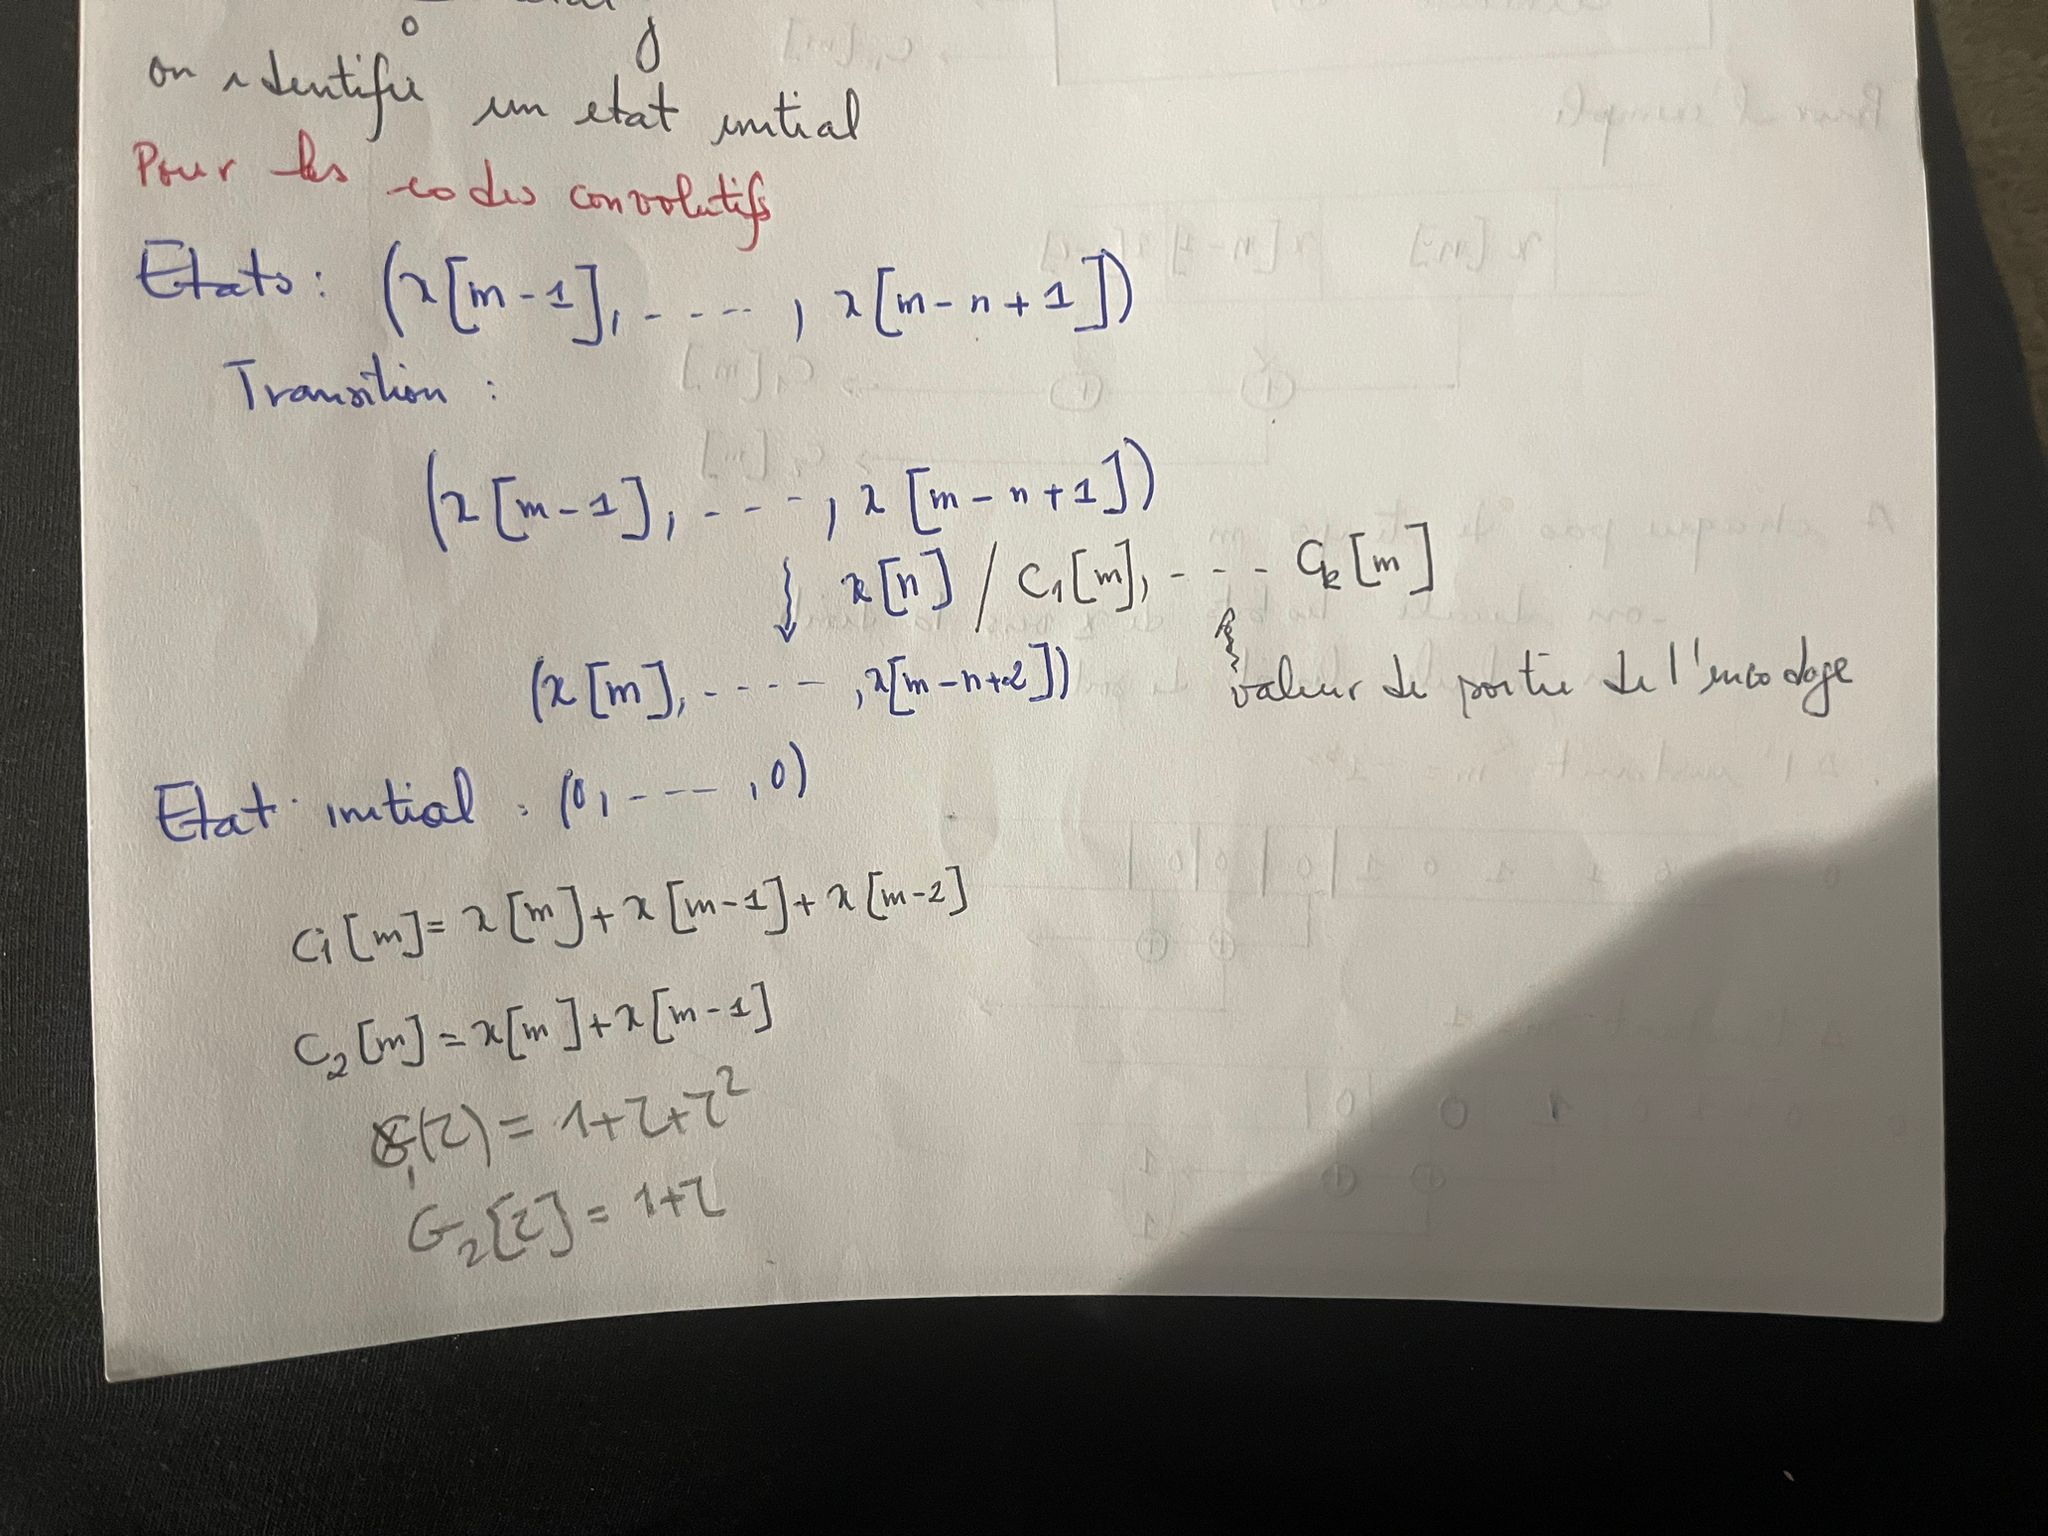 on identifie un etat initial
Pour les codes convolutifs
Etats : (x[m-1], ---- , x[m-n+1])
Transition :
(x[m-1], --- , x[m-n+1])
x[n] / C₁[m], --- Cₖ[m]
(x[m], ---- , x[m-n+2])
valeur de sortie de l'encodage
Etat initial : (0, --- , 0)
C₁[m] = x[m] + x[m-1] + x[m-2]
C₂[m] = x[m] + x[m-1]
G₁(Z) = 1+Z+Z²
G₂[Z] = 1+Z